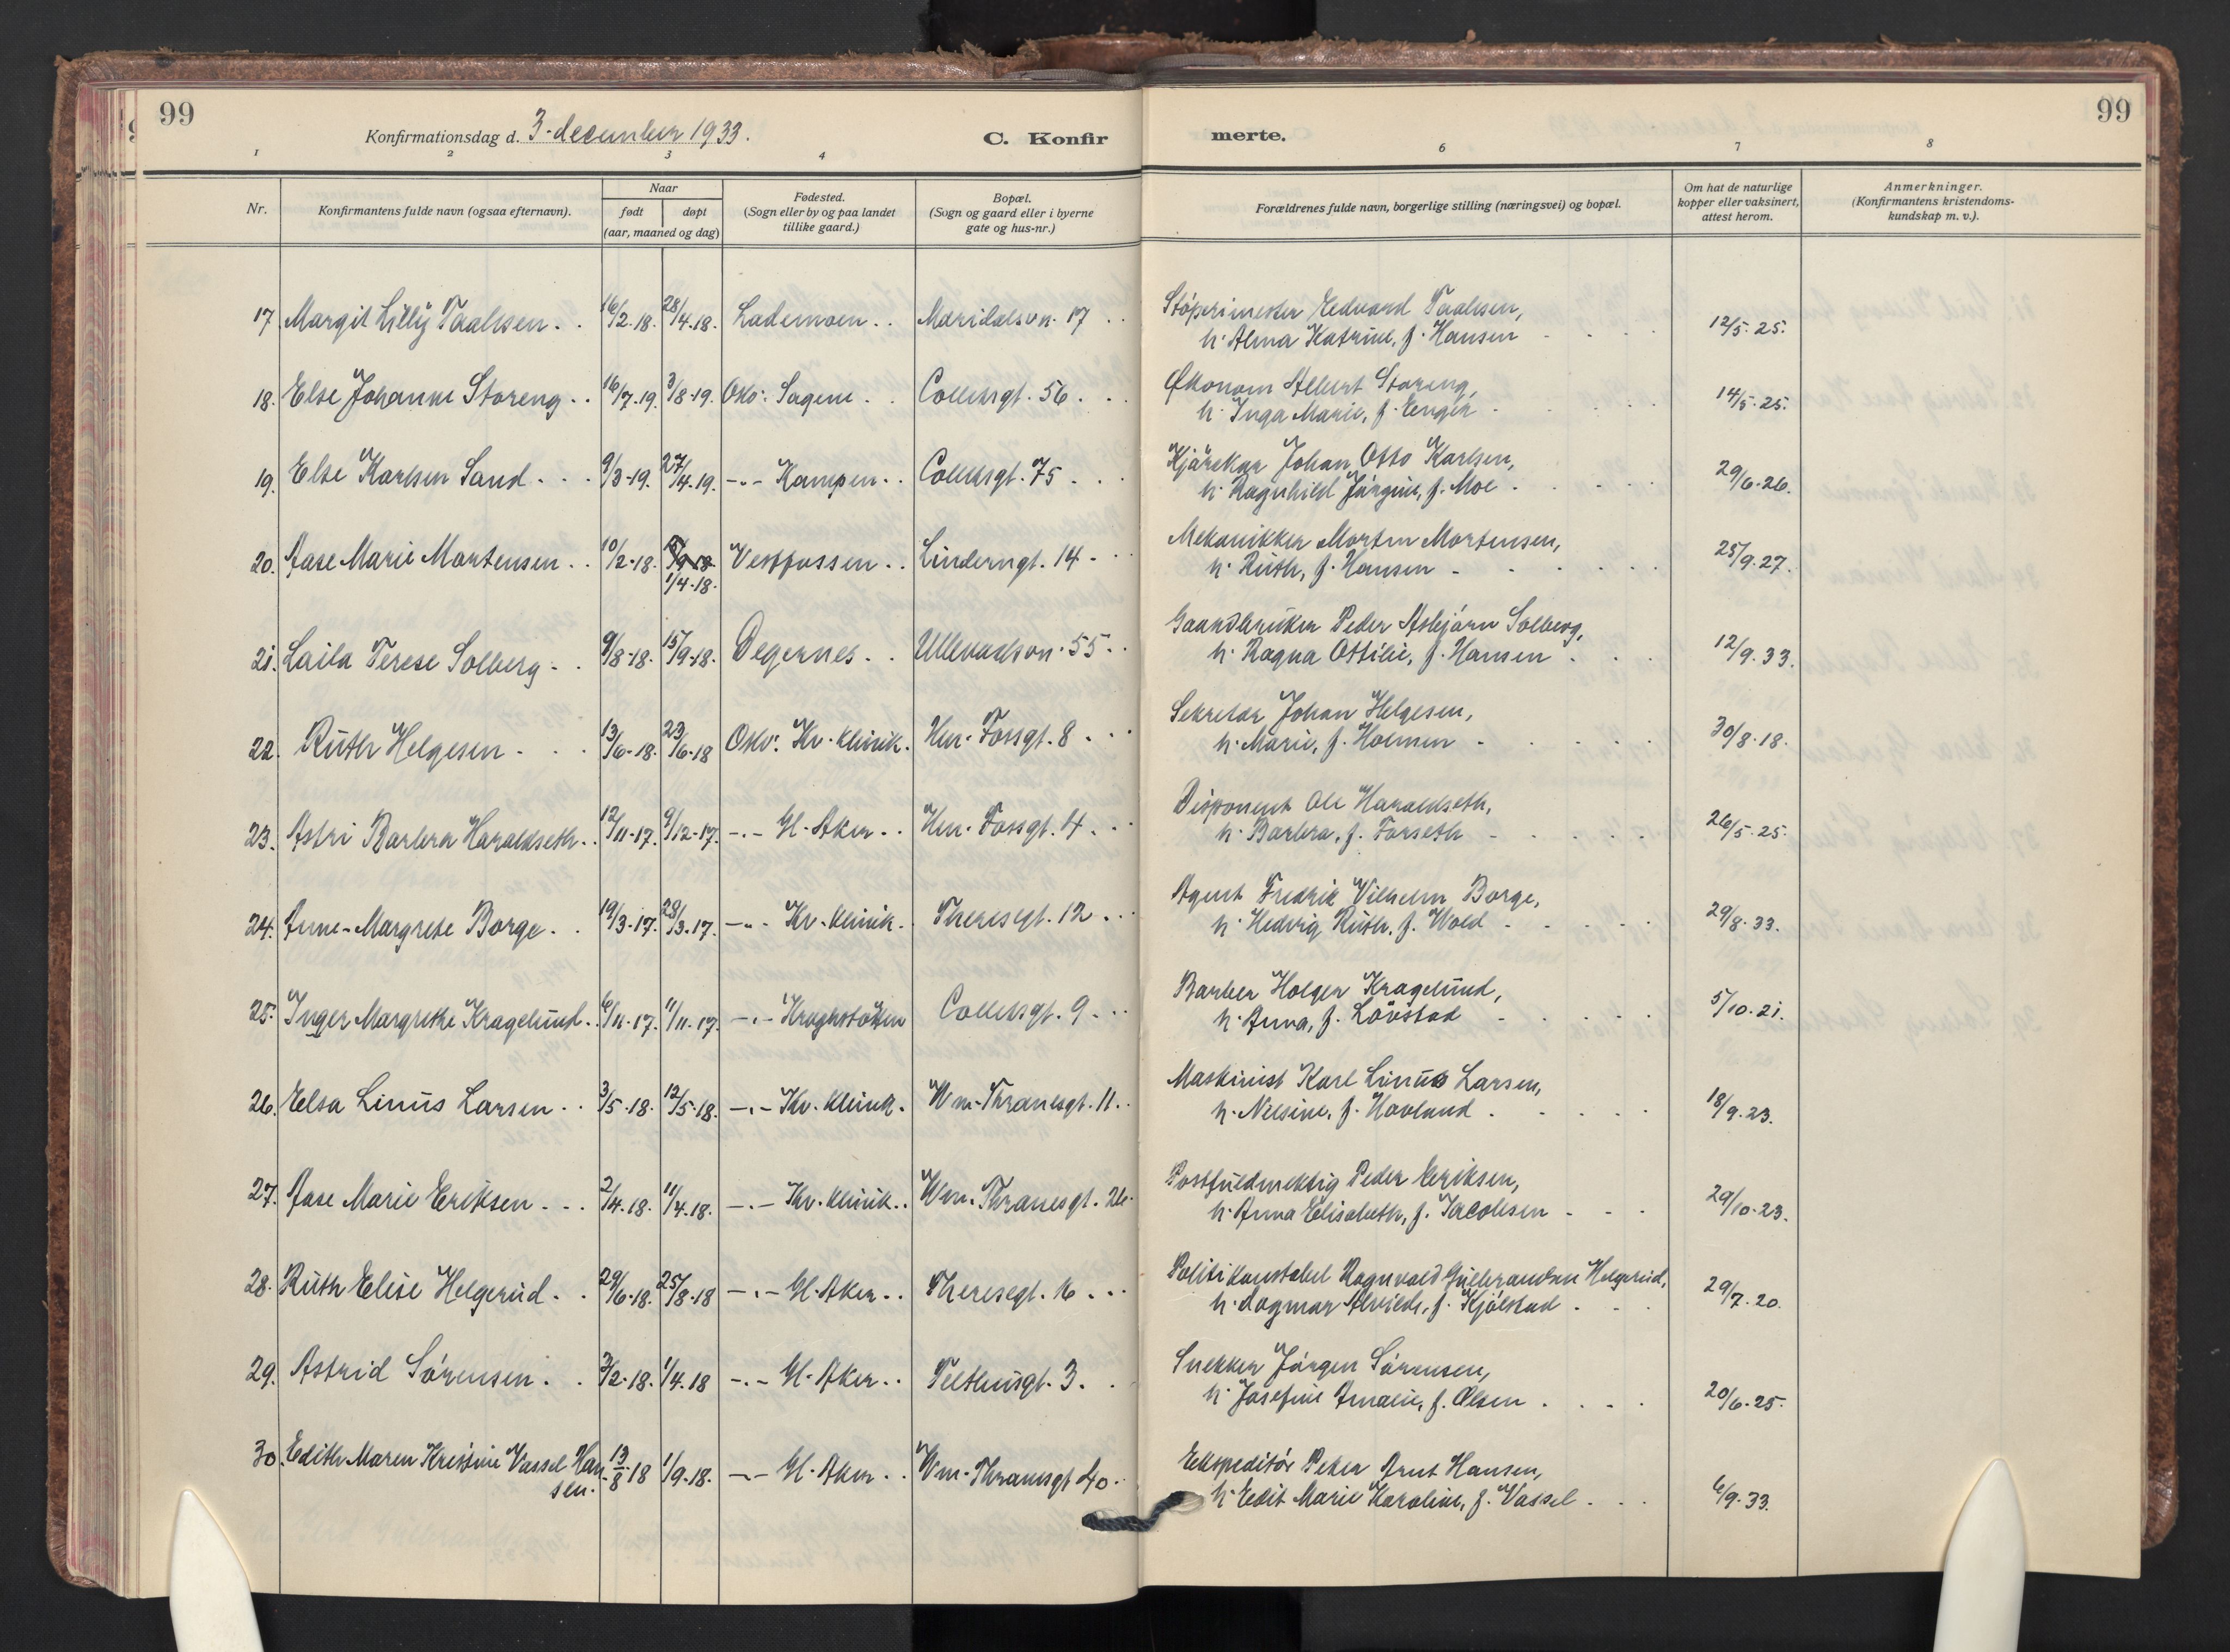 99
Konfirmationsdag d. 3. december 1933.
C. Konfir
merte.
99
1 2 3 4 6 7 8
Nr.
Konfirmantens fulde navn (ogsaa efternavn).
Naar
født
døpt
(aar, maaned og dag)
Fødested.
(Sogn eller by og paa landet
tillike gaard.)
Bopæl.
(Sogn og gaard eller i byerne
gate og hus-nr.)
Forældrenes fulde navn, borgerlige stilling (næringsvei) og bopæl.
Om hat de naturlige
kopper eller vaksinert,
attest herom.
Anmerkninger.
(Konfirmantens kristendoms-
kundskap m. v.).
17. Margit Lilly Paalsen. . 16/2-18. 28/4-18. Lademoen. . Maridalsvn. 17 . . Støperimester Edvard Paalsen,
h. Alma Katrine, f. Hansen 12/5-25.
18. Else Johanne Storeng. . 16/7-19. 3/8-19. Oslo: Sagene. . Collettsgt. 56. . . Økonom Albert Storeng,
h. Inga Marie, f. Enger 14/5-25.
19. Else Karlsen Sand. . . 9/3-19. 27/4-19. -.- Kampen. . Collettsgt. 75. . . Kjørekar Johan Otto Karlsen,
h. Ragnhild Jørgine, f. Moe 29/6-26.
20. Aase Marie Mortensen. . 10/2-18. 1/4-18. Vestfossen. . Linderngt. 14 - Mekanikker Morten Mortensen,
h. Ruth, f. Hansen 25/9.27.
21. Laila Terese Solberg - . 9/8-18. 15/9-18. Degernes. . Ullevaalsvn. 55. . Gaardbruker Peder Asbjørn Solberg,
h. Ragna Ottilie, f. Hansen 12/9.33.
22. Ruth Helgesen. . . 13/6-18. 23/6-18 Oslo: Kv. klinik. Hm. Fossgt. 8. . . Sekretær Johan Helgesen,
h. Marie, f. Holmen 30/8-18.
23. Astri Barbra Haraldseth. . 12/11-17. 9/12-17. -.- Gl. Aker. . Hm. Fossgt. 4. . . Disponent Ole Haraldseth,
h. Barbra, f. Forseth 26/5-25.
24. Anne-Margrete Borge. . 19/3-17. 28/3-17. -.- Kv. klinik. . Theresegt. 12. . . Agent Fredrik Vilhelm Borge,
h. Hedvig Ruth, f. Wold 29/8-33.
25. Inger Margrethe Kragelund. . 6/11-17. 11/11-17. -.- Collettsgt. 9. . . Barber Holger Kragelund,
h. Anna, f. Løvstad 5/10-21.
26. Elsa Linus Larsen. . 3/5-18. 12/5-18. -.- Kv. klinik. Wm. Thranesgt. 11. . Maskinist Karl Linus Larsen,
h. Nilsine, f. Hovland 18/9-23.
27. Aase Marie Eriksen. . . 2/4-18. 11/4-18. -.- Kv. klinik. . Wm. Thranesgt. 26. Postfuldmektig Peder Eriksen,
h. Anna Elisabeth, f. Jacobsen 29/10-23.
28. Ruth Elise Helgerud. . 29/6-18. 25/8-18 -.- Gl. Aker. . Theresegt. 16. . . Politikonstabel Ragnvald Gulbrandsen Helgerud,
h. Dagmar Alvilde, f. Kjølstad 29/7-20.
29. Astrid Sørensen. . 3/2-18. 1/4-18 -.- Gl. Aker. . Telthusgt. 3. . Snekker Jørgen Sørensen,
h. Josefine Amalie, f. Olsen 20/6-25.
30. Edith Maren Kristine Vassel Han- 13/8-18 1/9-18. -.- Gl. Aker. . Wm. Thranesgt 40. . Ekspeditør Peter Arnt Hansen,
sen. h. Edit Marie Karoline, f. Vassel 6/9-33.